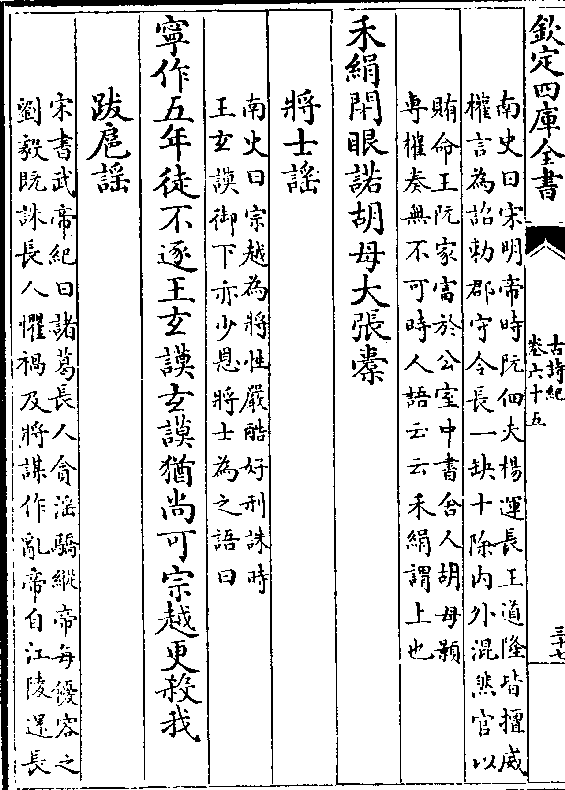 欽定四庫全書
古詩紀
卷六十五
三十七
南史曰宋明帝時阮佃夫楊運長王道隆皆擅威
權言為詔勅郡守令長一缺十除内外混然官以
賄命王阮家富於公室中書舍人胡母顥
專權奏無不可時人語云云禾絹謂上也
禾絹閉眼諾胡母大張橐
將士謡
南史曰宗越為將性嚴酷好刑誅時
王玄謨御下亦少恩將士為之語曰
寧作五年徒不逐王玄謨玄謨猶尚可宗越更殺我
跋扈謡
宋書武帝紀曰諸葛長人貪滛驕縱帝每優容之
劉毅既誅長人懼禍及將謀作亂帝自江陵還長